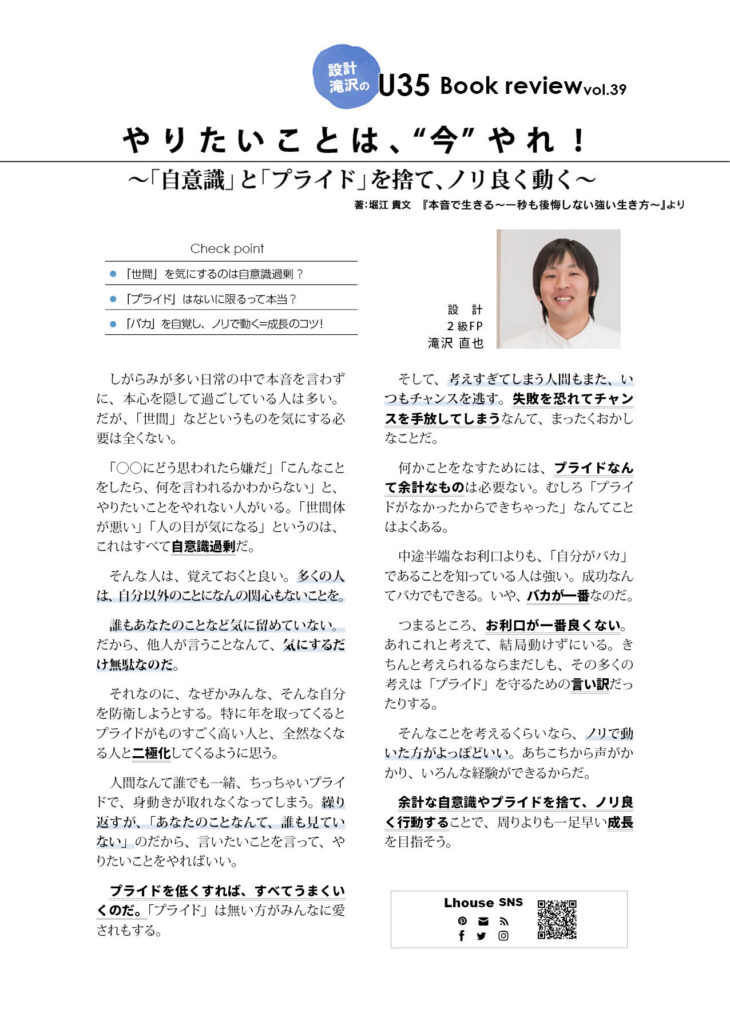 設計
滝沢の
U35 Book review vol.39
やりたいことは、“今”やれ！
～「自意識」と「プライド」を捨て、ノリ良く動く～
著:堀江 貴文　『本音で生きる～一秒も後悔しない強い生き方～』より
Check point
● 「世間」を気にするのは自意識過剰？
● 「プライド」はないに限るって本当？
● 「バカ」を自覚し、ノリで動く=成長のコツ！
設　計
２級FP
滝沢 直也
しがらみが多い日常の中で本音を言わず
に、本心を隠して過ごしている人は多い。
だが、「世間」などというものを気にする必
要は全くない。
「〇〇にどう思われたら嫌だ」「こんなこと
をしたら、何を言われるかわからない」と、
やりたいことをやれない人がいる。「世間体
が悪い」「人の目が気になる」というのは、
これはすべて自意識過剰だ。
そんな人は、覚えておくと良い。多くの人
は、自分以外のことになんの関心もないことを。
誰もあなたのことなど気に留めていない。
だから、他人が言うことなんて、気にするだ
け無駄なのだ。
それなのに、なぜかみんな、そんな自分
を防衛しようとする。特に年を取ってくると
プライドがものすごく高い人と、全然なくな
る人と二極化してくるように思う。
人間なんて誰でも一緒、ちっちゃいプライ
ドで、身動きが取れなくなってしまう。繰り
返すが、「あなたのことなんて、誰も見てい
ない」のだから、言いたいことを言って、や
りたいことをやればいい。
プライドを低くすれば、すべてうまくい
くのだ。「プライド」は無い方がみんなに愛
されもする。
そして、考えすぎてしまう人間もまた、い
つもチャンスを逃す。失敗を恐れてチャン
スを手放してしまうなんて、まったくおかし
なことだ。
何かことをなすためには、プライドなん
て余計なものは必要ない。むしろ「プライ
ドがなかったからできちゃった」なんてこと
はよくある。
中途半端なお利口よりも、「自分がバカ」
であることを知っている人は強い。成功なん
てバカでもできる。いや、バカが一番なのだ。
つまるところ、お利口が一番良くない。
あれこれと考えて、結局動けずにいる。き
ちんと考えられるならまだしも、その多くの
考えは「プライド」を守るための言い訳だっ
たりする。
そんなことを考えるくらいなら、ノリで動
いた方がよっぽどいい。あちこちから声がか
かり、いろんな経験ができるからだ。
余計な自意識やプライドを捨て、ノリ良
く行動することで、周りよりも一足早い成長
を目指そう。
Lhouse SNS